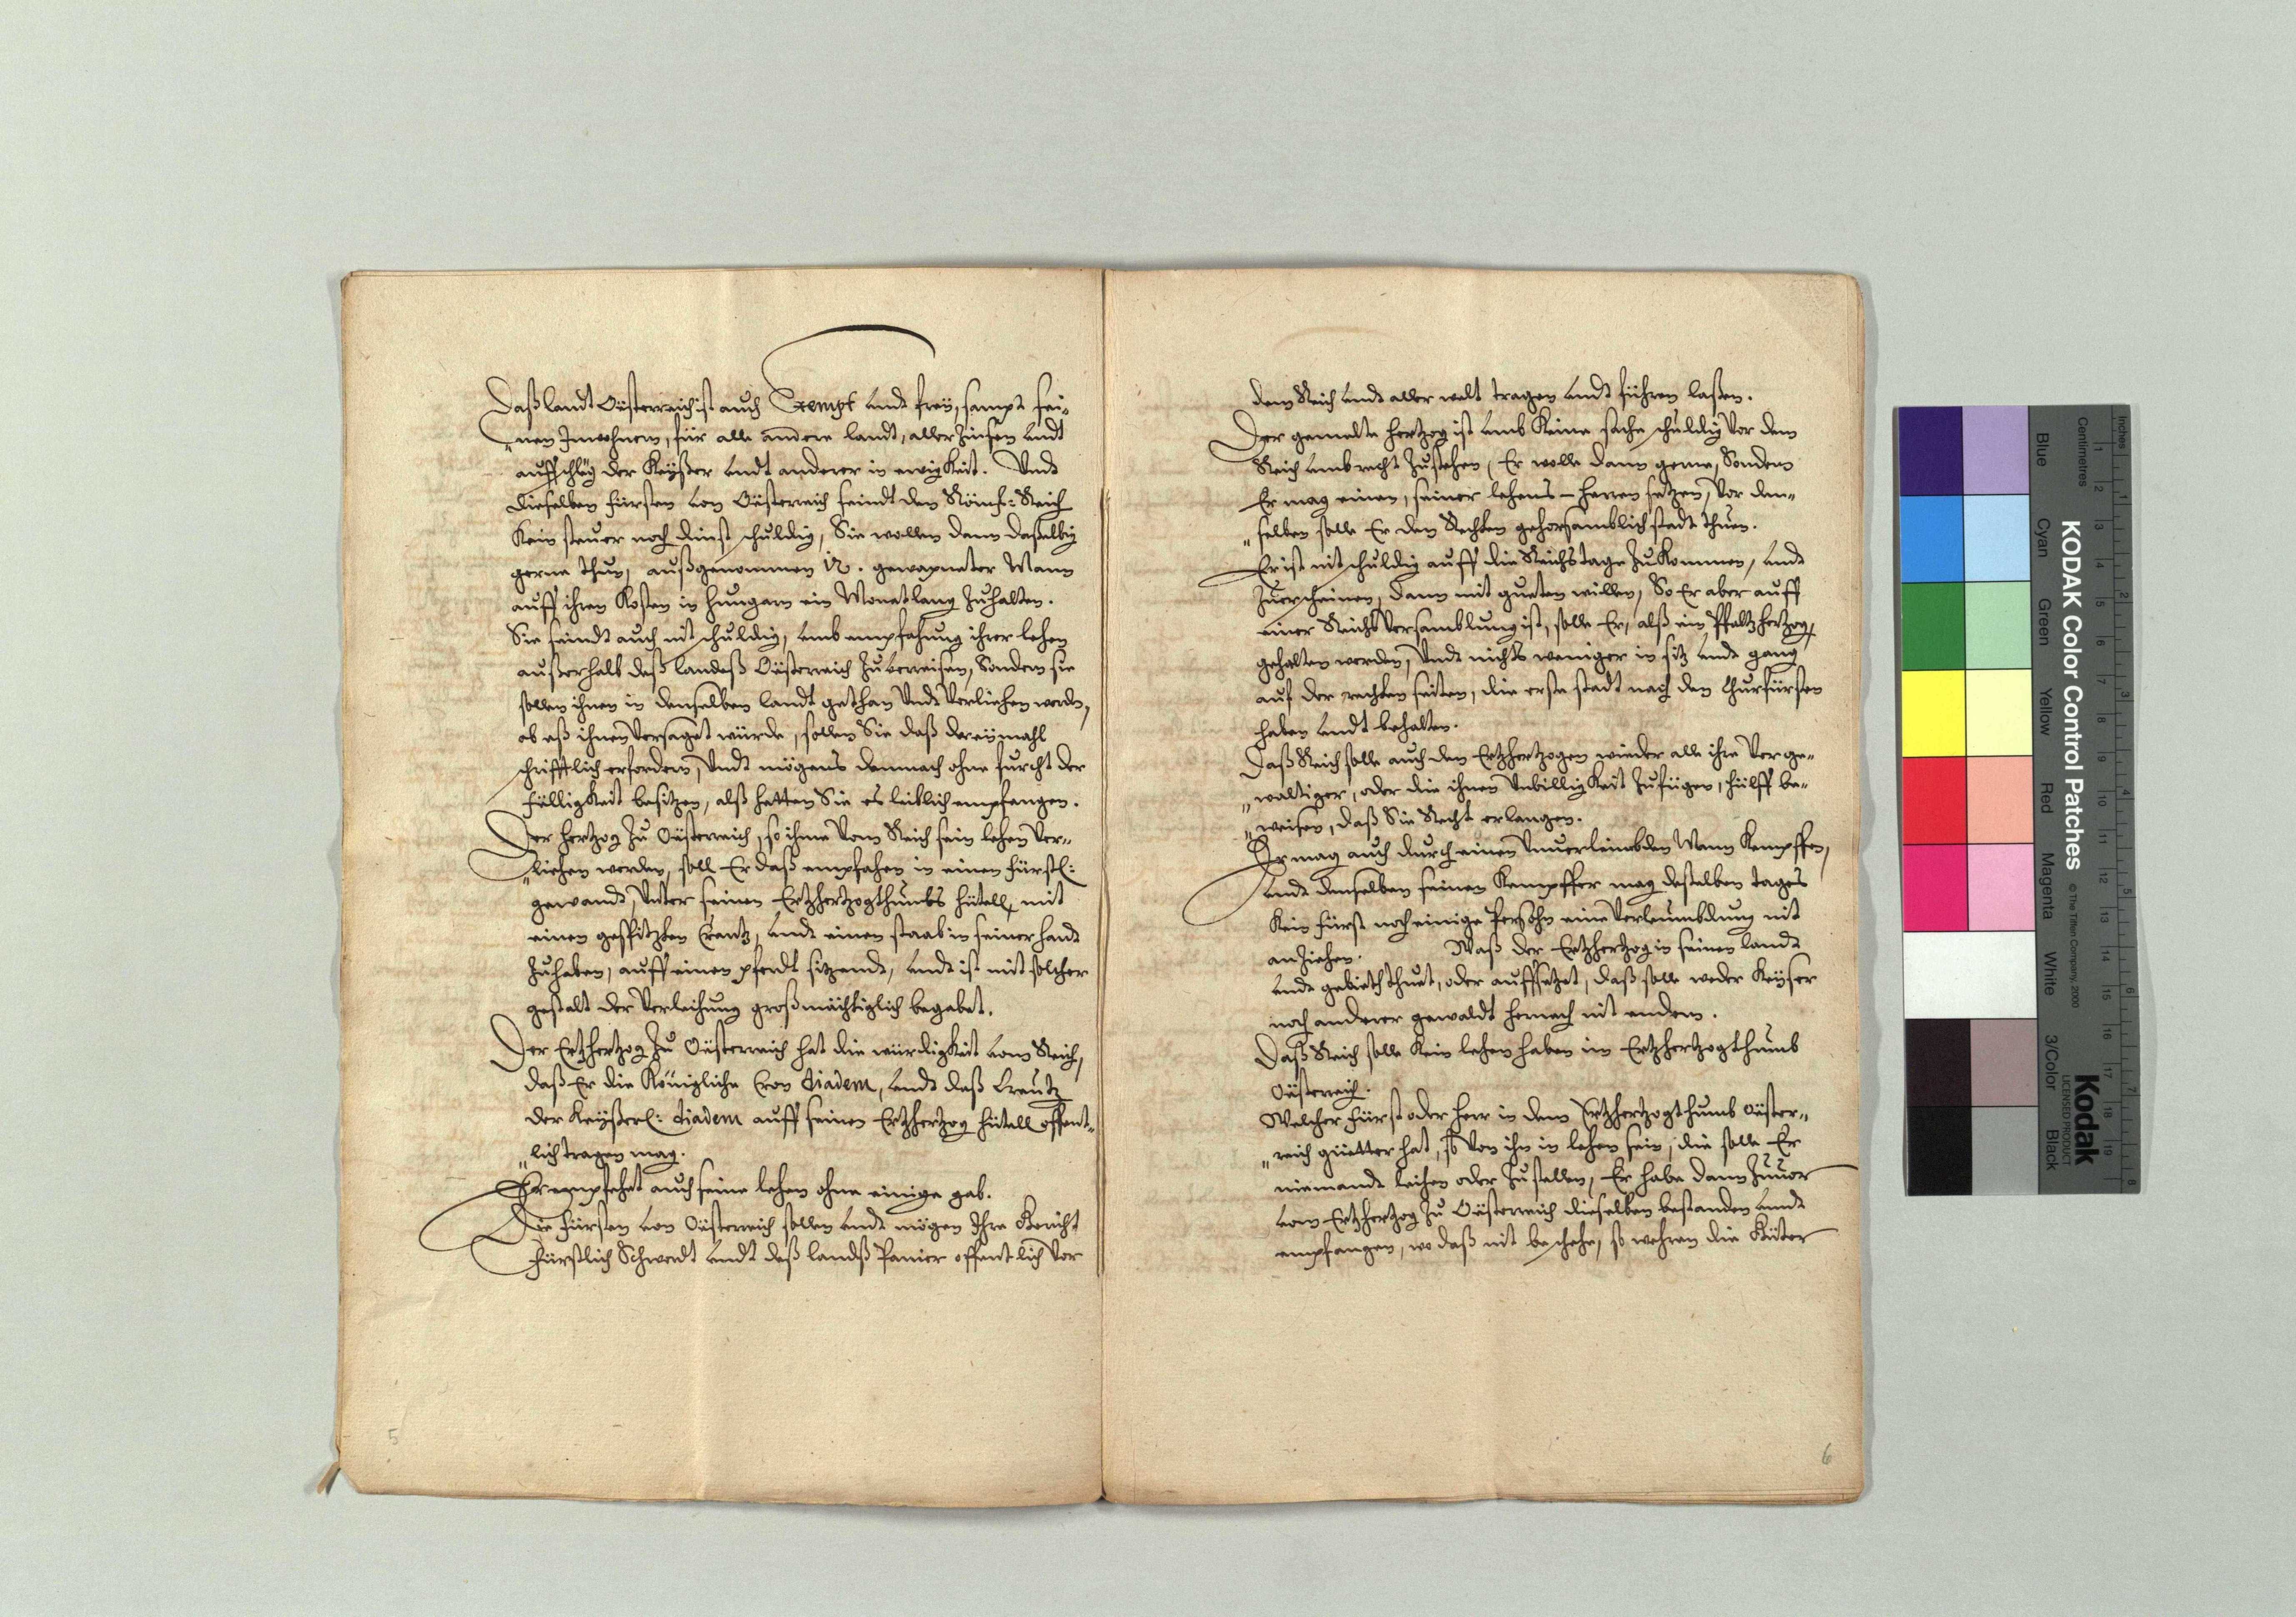 Daß landt Oësterreich ist auch Exempt undt freÿ, sampt sei¬
„nen Inwohnern, für alle andere landt, aller Zinsen undt
auffschläg der Keÿßer undt anderer in ewigkeit. Undt
dieselben Fürsten von Oësterreich seindt dem Römis: Reich
Kein steuer noch dinst schuldig, Sie wollen dann daßelbig
gerne thun, außgenommen 12. gewapneter Mann
auff ihren Kosten in Hungarn ein Monat lang Zuhalten.
Sie seindt auch nit schuldig, umb empfahung ihrer lehen
außerhalb deß landeß Oësterreich Zuverreisen, Sondern sie
sollen ihnen in demselben landt gethan Undt Verliehen werden,
ob eß ihnen Versaget würde, sollen Sie daß dreÿmahl
schrifftlich erfordern, Undt mögens demnach ohne furcht der
fälligkeit besitzen, alß hetten Sie es leiblich empfangen.
Der Hertzog Zu Oësterreich, so ihme Vom Reich sein lehen Ver„
„liehen werden, soll Er daß empfahen in einem Fürstl:
gewandt, Unter seinen Ertzhertzogthumbs Hütell, mit
einen gespitzten Crantz, undt einen staab in seiner Handt
Zuhaben, auff einen pferdt sitzendt, undt ist mit solcher
gestalt der Verleihung großmächtiglich begabet.
Der Ertzhertzog Zu Oësterreich hat die würdigkeit vom Reich,
daß Er die Königliche Cron diadem, undt daß Creutz
der Keÿßerl: diadem auff seinen Ertzhertzog Hütell offent„
„lich tragen mag.
Er empfehet auch seine lehen ohne einige gab.
Die Fürsten von Oësterreich sollen undt mögen Ihre Gericht
Fürstlich Schwerdt undt deß landß Panier offentlich Vor
5
dem Reich undt aller welt tragen undt führen laßen.
Der gemelte Hertzog ist umb Keine sache schuldig Vor dem
Reich umb recht Zustehen, Er wolle dann gerne, Sondern
Er mag einen, seiner lehens-Herren setzen, Vor dem„
„selben solle Er den Rechten gehorsamblich stadt thuen.
Er ist nit schuldig auff die Reichstage Zukommen, undt
Zuerscheinen, dann mit gueten willen, So Er aber auff
einer Reichs Versamblung ist, solle Er, alß ein Pfaltzhertzog,
gehalten werden, Undt nichts weniger in sitz undt gang
auf der rechten seiten, die erste stadt nach den Churfürsten
haben undt behalten.
Daß Reich solle auch den Ertzhertzogen wieder alle ihre Verge„
„waltiger, oder die ihnen Unbilligkeit Zufügen, hülff be„
„weisen, daß Sie Recht erlangen.
Er mag auch durch einen Unverleimbden Mann Kempffen,
undt denselben seinen Kempffer mag deßelben tages
Kein Fürst noch einige Persohn eine Verleumbdung nit
anziehen. Waß der Ertzhertzog in seinen landt
undt gebieth thuet, oder auffsetzet, daß solle weder Keÿser
noch anderer gewaldt hernach nit endern.
Daß Reich solle Kein lehen haben im Ertzhertzogthumb
Oësterreich.
Welcher Fürst oder Herr in dem Ertzhertzogthumb Oëster„
„reich güetter hat, so Von ihn in lehen sein, die solle Er
niemandt leihen oder Zustellen, Er habe dann Zuuor
vom Ertzhertzog Zu Oësterreich dieselben bestanden undt
empfangen, wo daß nit beschehe, so wehren die Güter
6
KODAK Color Control Patches
© The Tiffen Company, 2000
Kodak
LICENSED PRODUCT
Inches
Centimetres
Blue
Cyan
Green
Yellow
Red
Magenta
White
3/Color
Black